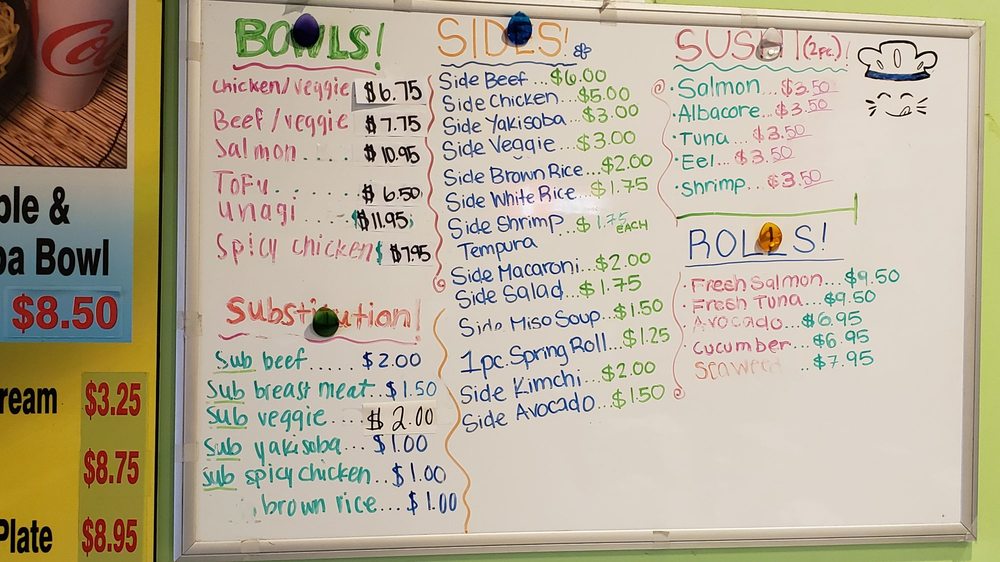 ple &
a Bowl
$8.50
ream $3.25
$8.75
Plate $8.95
BOWLS!
Chicken/veggie $6.75
Beef/veggie $7.75
Salmon.... $10.95
Tofu...... $6.50
Unagi... $11.95
Spicy chicken $7.95
Substitution!
Sub beef..... $2.00
Sub breast meat.. $1.50
Sub veggie.... $2.00
Sub yakisoba... $1.00
Sub spicy chicken.. $1.00
brown rice... $1.00
SIDES!
Side Beef...$6.00
Side Chicken...$5.00
Side Yakisoba...$3.00
Side Veggie...$3.00
Side Brown Rice...$2.00
Side White Rice...$1.75
Side Shrimp...$1.75 EACH
Tempura
Side Macaroni...$2.00
Side Salad...$1.75
Side Miso Soup...$1.50
1pc. Spring Roll...$1.25
Side Kimchi...$2.00
Side Avocado...$1.50
SUSHI (2pc.)!
· Salmon...$3.50
· Albacore...$3.50
· Tuna...$3.50
· Eel...$3.50
· Shrimp...$3.50
ROLLS!
· Fresh Salmon...$9.50
· Fresh Tuna...$9.50
· Avocado...$6.95
· Cucumber...$6.95
Seaweed ...$7.95